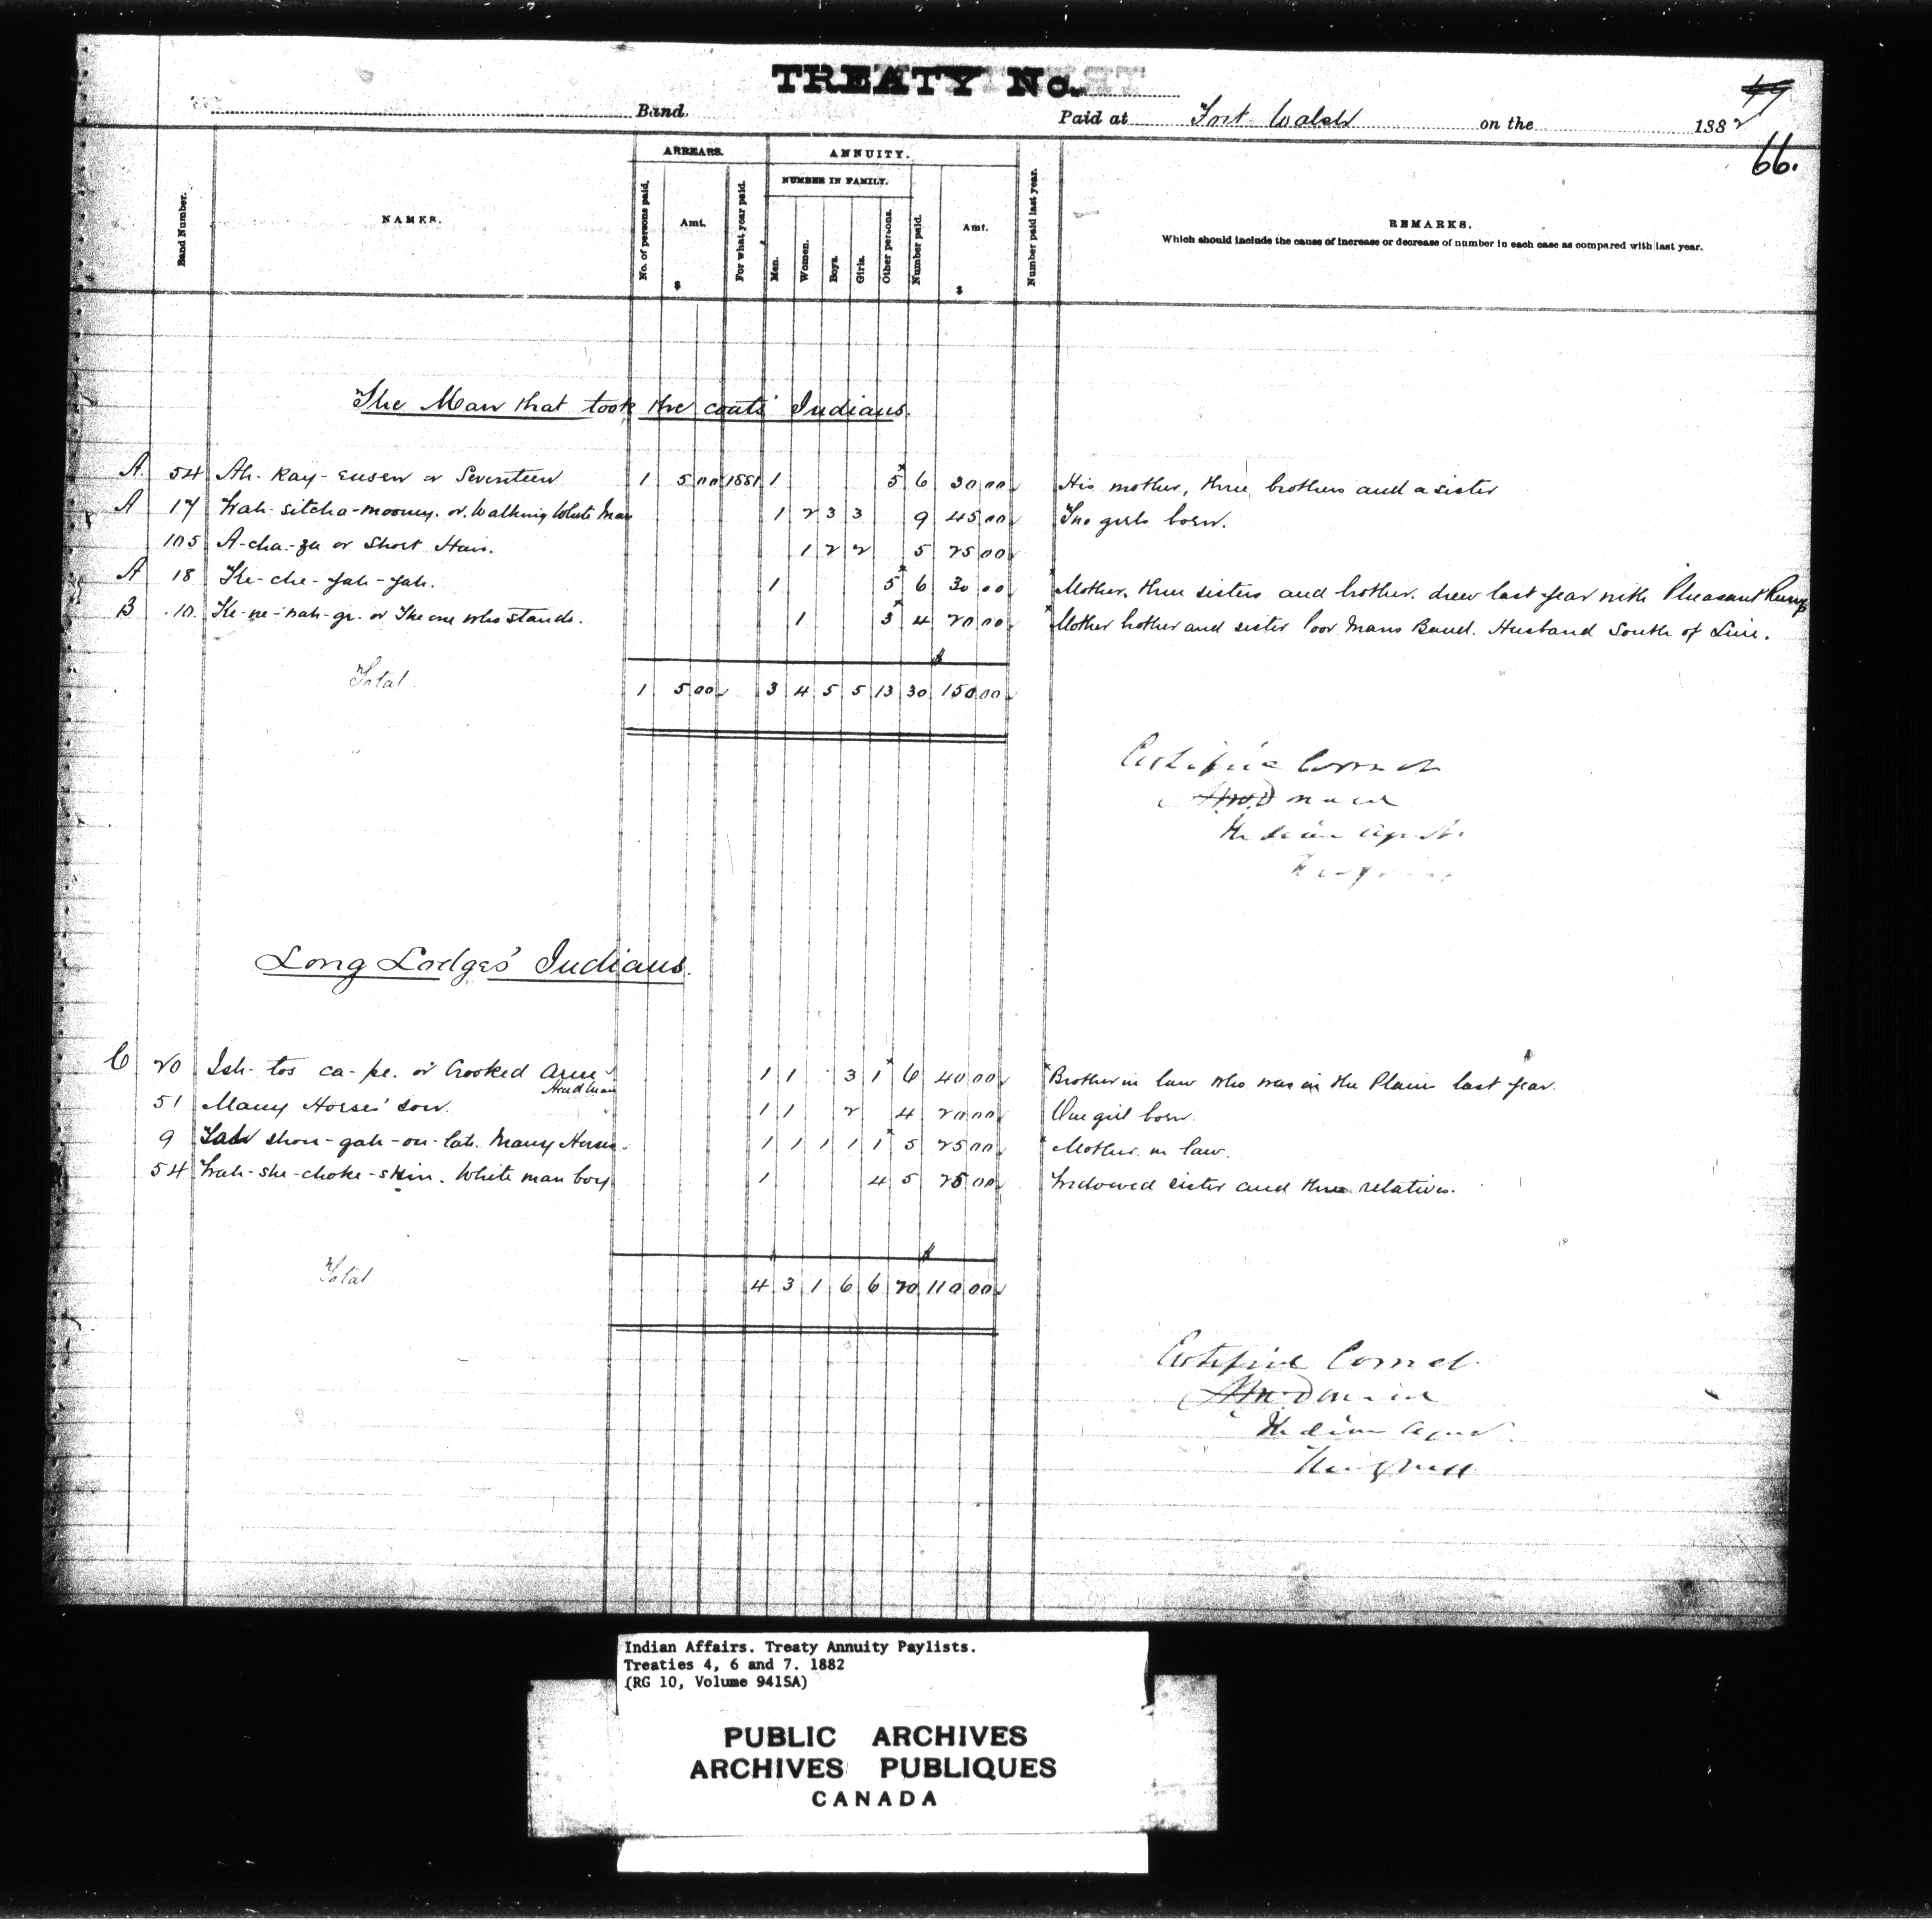 TREATY No.
Band. Paid at Fort Walsh on the 1882
66.
ARREARS. ANNUITY.
NUMBER IN FAMILY.
Band Number. NAMES. No. of persons paid. Amt. $ For what year paid. Men. Women. Boys. Girls. Other persons. Number paid. Amt. $ Number paid last year. REMARKS.
Which should include the cause of increase or decrease of number in each case as compared with last year.
The Man that took the coats' Indians.
A. 54 Ah-kay-eusen or Seventeen 1 5 00 1881 1 5 6 30 00 His mother, three brothers and a sister
A 17 Wah-sitcha-mooney. or. Walking White Man 1 2 3 3 9 45 00 Two girls born.
105 A-cha-za or Short Hair. 1 2 2 5 25 00
A 18 Ke-che-yah-yah. 1 5 6 30 00 Mother, three sisters and brother. drew last year with Pleasant Rump
B 10. Ke-ne-nah-gr. or The one who stands. 1 3 4 20 00 Mother brother and sister Poor Mans Band. Husband South of Line.
Total 1 5 00 3 4 5 5 13 30 $ 150 00
Certified Correct
McDonald
Indian Agent
Long Lodges' Indians.
C 20 Ish-tos ca-pe. or Crooked Arm 1 1 3 1 6 40 00 Brother in law who was in the Plains last year.
Head Man
51 Many Horses' son. 1 1 2 4 20 00 One girl born.
9 Tah shon-gah-ou-lah. Many Horses. 1 1 1 1 1 5 25 00 Mother in law.
54 Wah-she-choke-skin. White man boy 1 4 5 25 00 Widowed sister and three relatives.
Total 4 3 1 6 6 20 $ 110 00
Certified Correct
McDonald
Indian Agent
Indian Affairs. Treaty Annuity Paylists.
Treaties 4, 6 and 7. 1882
(RG 10, Volume 9415A)
PUBLIC ARCHIVES
ARCHIVES PUBLIQUES
CANADA